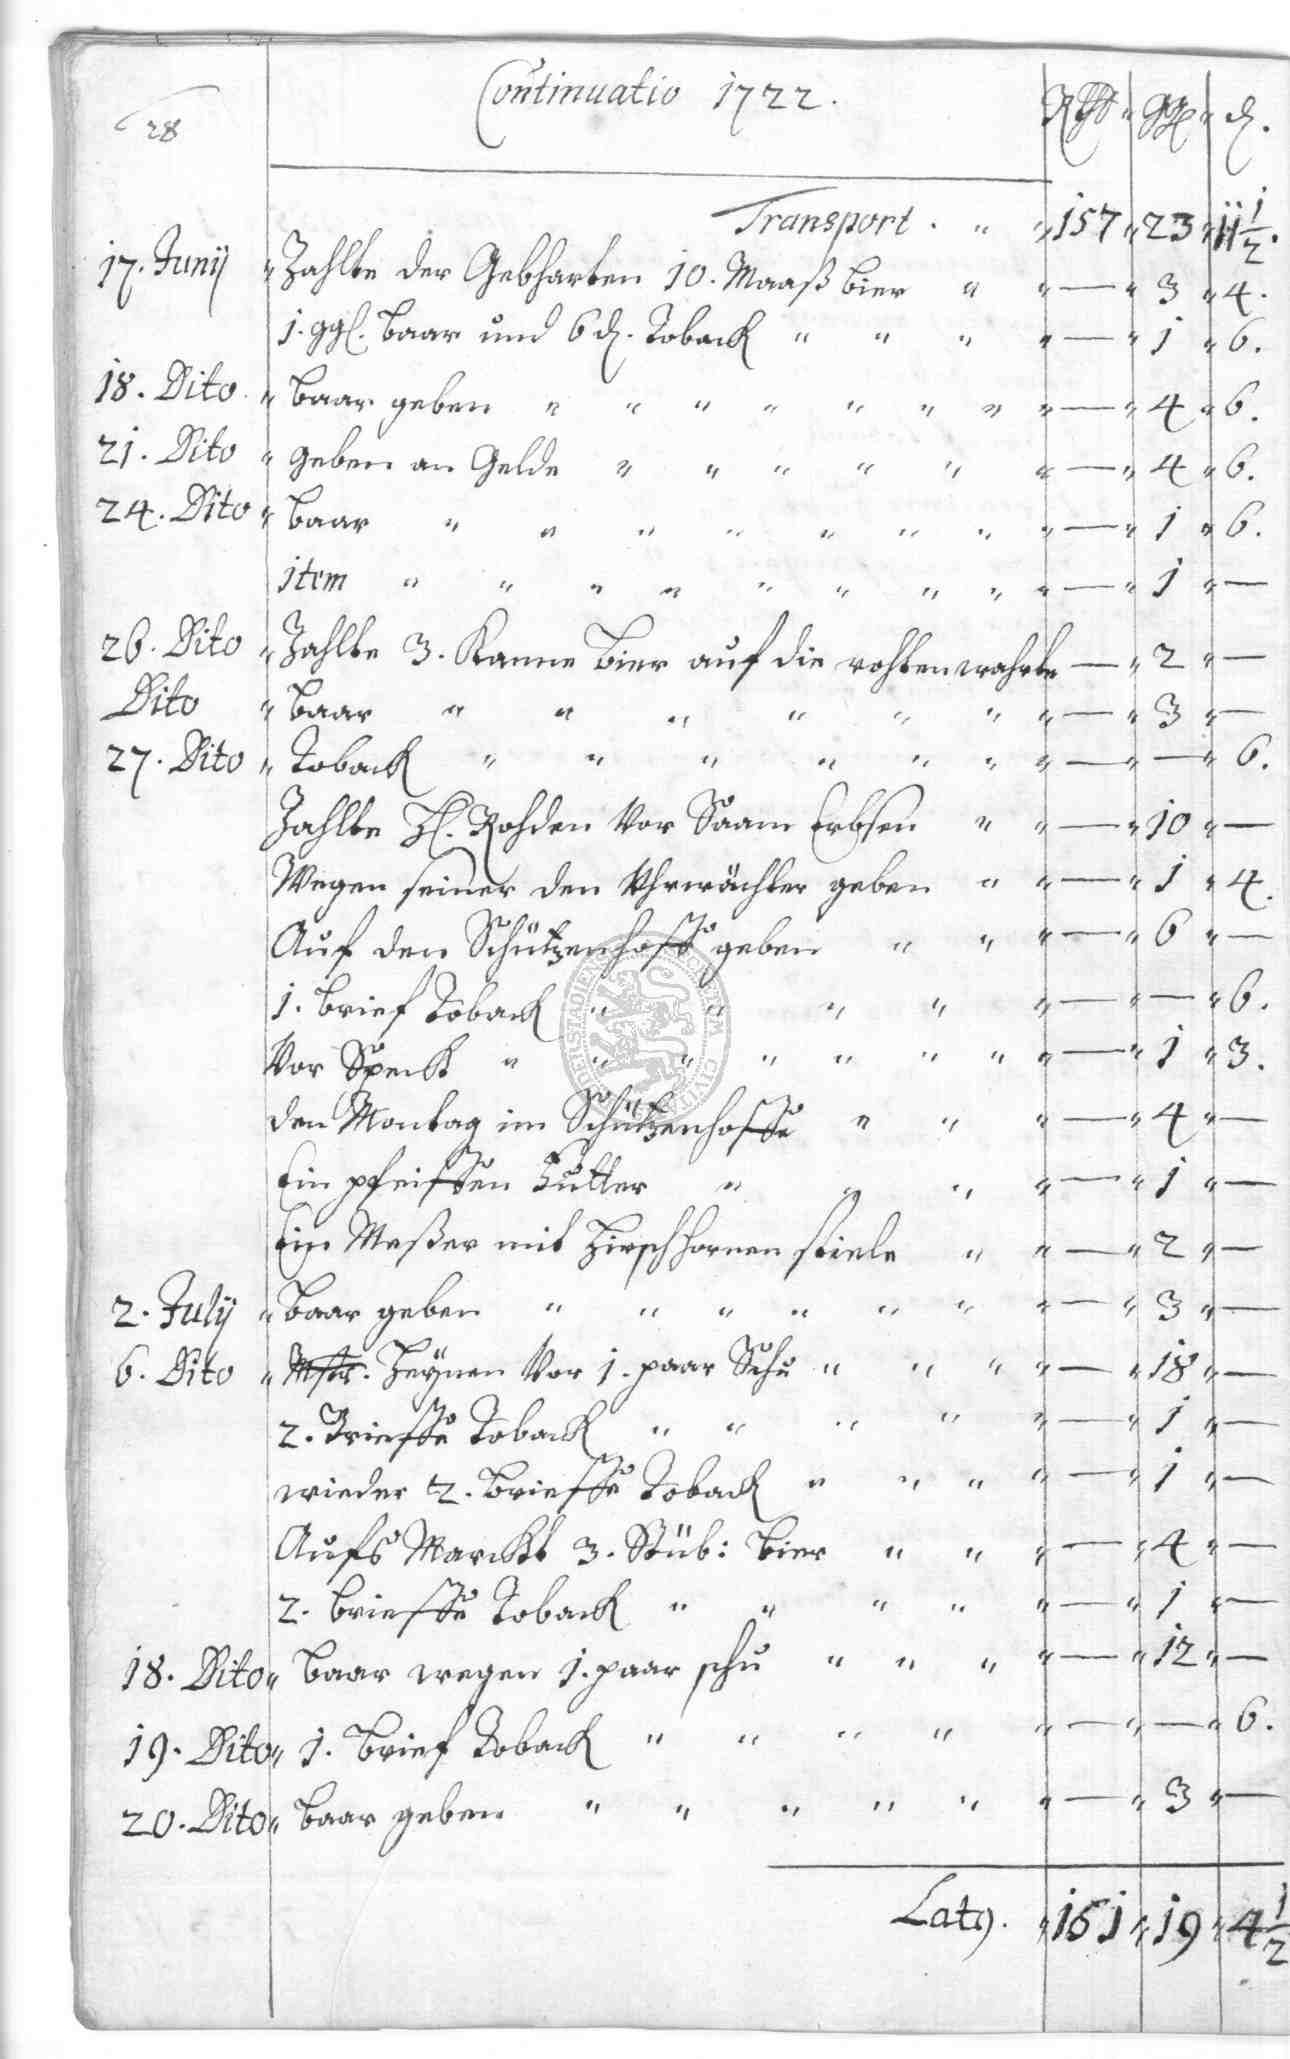 28
Continuatio 1722.
Rthl " ggl " d.
Transport . " " 157 " 23 " 11 1/2.
17. Junij " Zahlte der Gebharten 10. Maaß bier " " — " 3 " 4.
1. ggl. baar und 6 d. Toback " " " " — " 1 " 6.
18. Dito " baar geben " " " " " " " " — " 4 " 6.
21. Dito " geben an Gelde " " " " " " — " 4 " 6.
24. Dito " baar " " " " " " " " — " 1 " 6.
item " " " " " " " " " — " 1 " —
26. Dito " Zahlte 3. Kanne bier auf die rohten wahrte — " 2 " —
Dito " baar " " " " " " " — " 3 " —
27. Dito " Toback " " " " " " " — " — " 6.
Zahlte H. Rohden Vor Saam Erbsen " " — " 10 " —
Wegen seiner den Uhrwächter geben " " — " 1 " 4.
Auf den Schützenhoff geben " " " — " 6 " —
1. brief Toback " " " " " — " — " 6.
Vor Speck " " " " " " " " — " 1 " 3.
den Montag im Schützenhoffe " " " — " 4 " —
Ein pfeiffen Futter " " " " — " 1 " —
Ein Meßer mit Hirschhornen stiele " " — " 2 " —
2. Julij " baar geben " " " " " " " — " 3 " —
6. Dito " Mstr. Heÿnen Vor 1. paar Schu " " " " — " 18 " —
2. Brieffe Toback " " " " " — " 1 " —
wieder 2. brieffe Toback " " " " — " 1 " —
Aufs Marckt 3. Stüb: bier " " " — " 4 " —
2. brieffe Toback " " " " " — " 1 " —
18. Dito " baar wegen 1. paar schu " " " " — " 12 " —
19. Dito " 1. brief Toback " " " " " — " — " 6.
20. Dito " baar geben " " " " " " — " 3 " —
Lat9. " 161 " 19 " 4 1/2